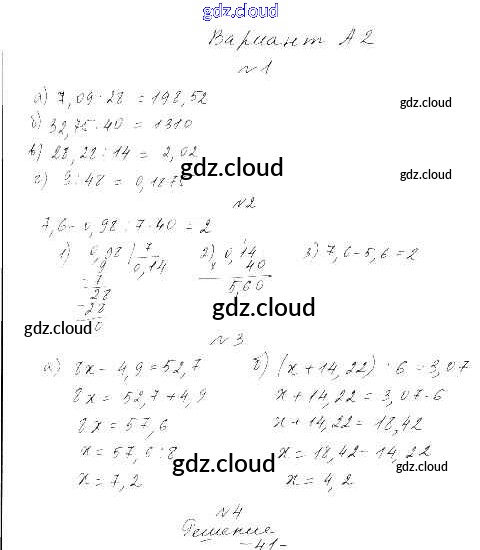 gdz.cloud
Вариант А2
№1
а) 7,09·28 = 198,52
gdz.cloud
б) 32,75·40 = 1310
в) 28,28:14 = 2,02
gdz.cloud
gdz.cloud
г) 9:48 = 0,1875
№2
7,6-0,98:7·40 = 2
1) 0,98 | 7
0,14
2) 0,14
3) 7,6-5,6=2
40
7
28
5,60
28
0
gdz.cloud
gdz.cloud
gdz.cloud
№3
а) 8x - 4,9 = 52,7
б) (x + 14,22) : 6 = 3,07
8x = 52,7 + 4,9
x + 14,22 = 3,07·6
8x = 57,6
x + 14,22 = 18,42
x = 57,6 : 8
x = 18,42 - 14,22
gdz.cloud
gdz.cloud
x = 7,2
x = 4,2
№4
Решение
-41-
gdz.cloud